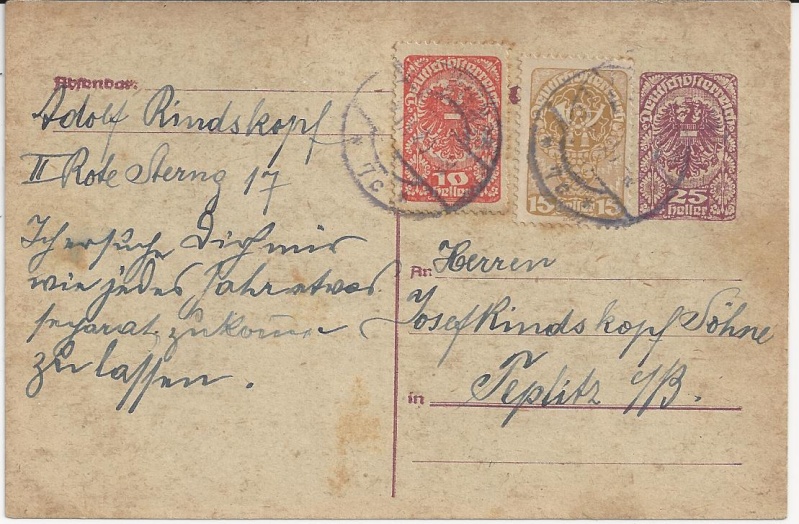 Absender:
Adolf Rindskopf
II Rote Sterng 17
Ich ersuche Dich mir
wie jedes Jahr etwas
separat zukomme
zu lassen.
Deutschösterreich
10
heller
Deutschösterreich
15 heller 15
Deutschösterreich
25
heller
An Herren
Josef Rindskopf Söhne
in Teplitz i/B.